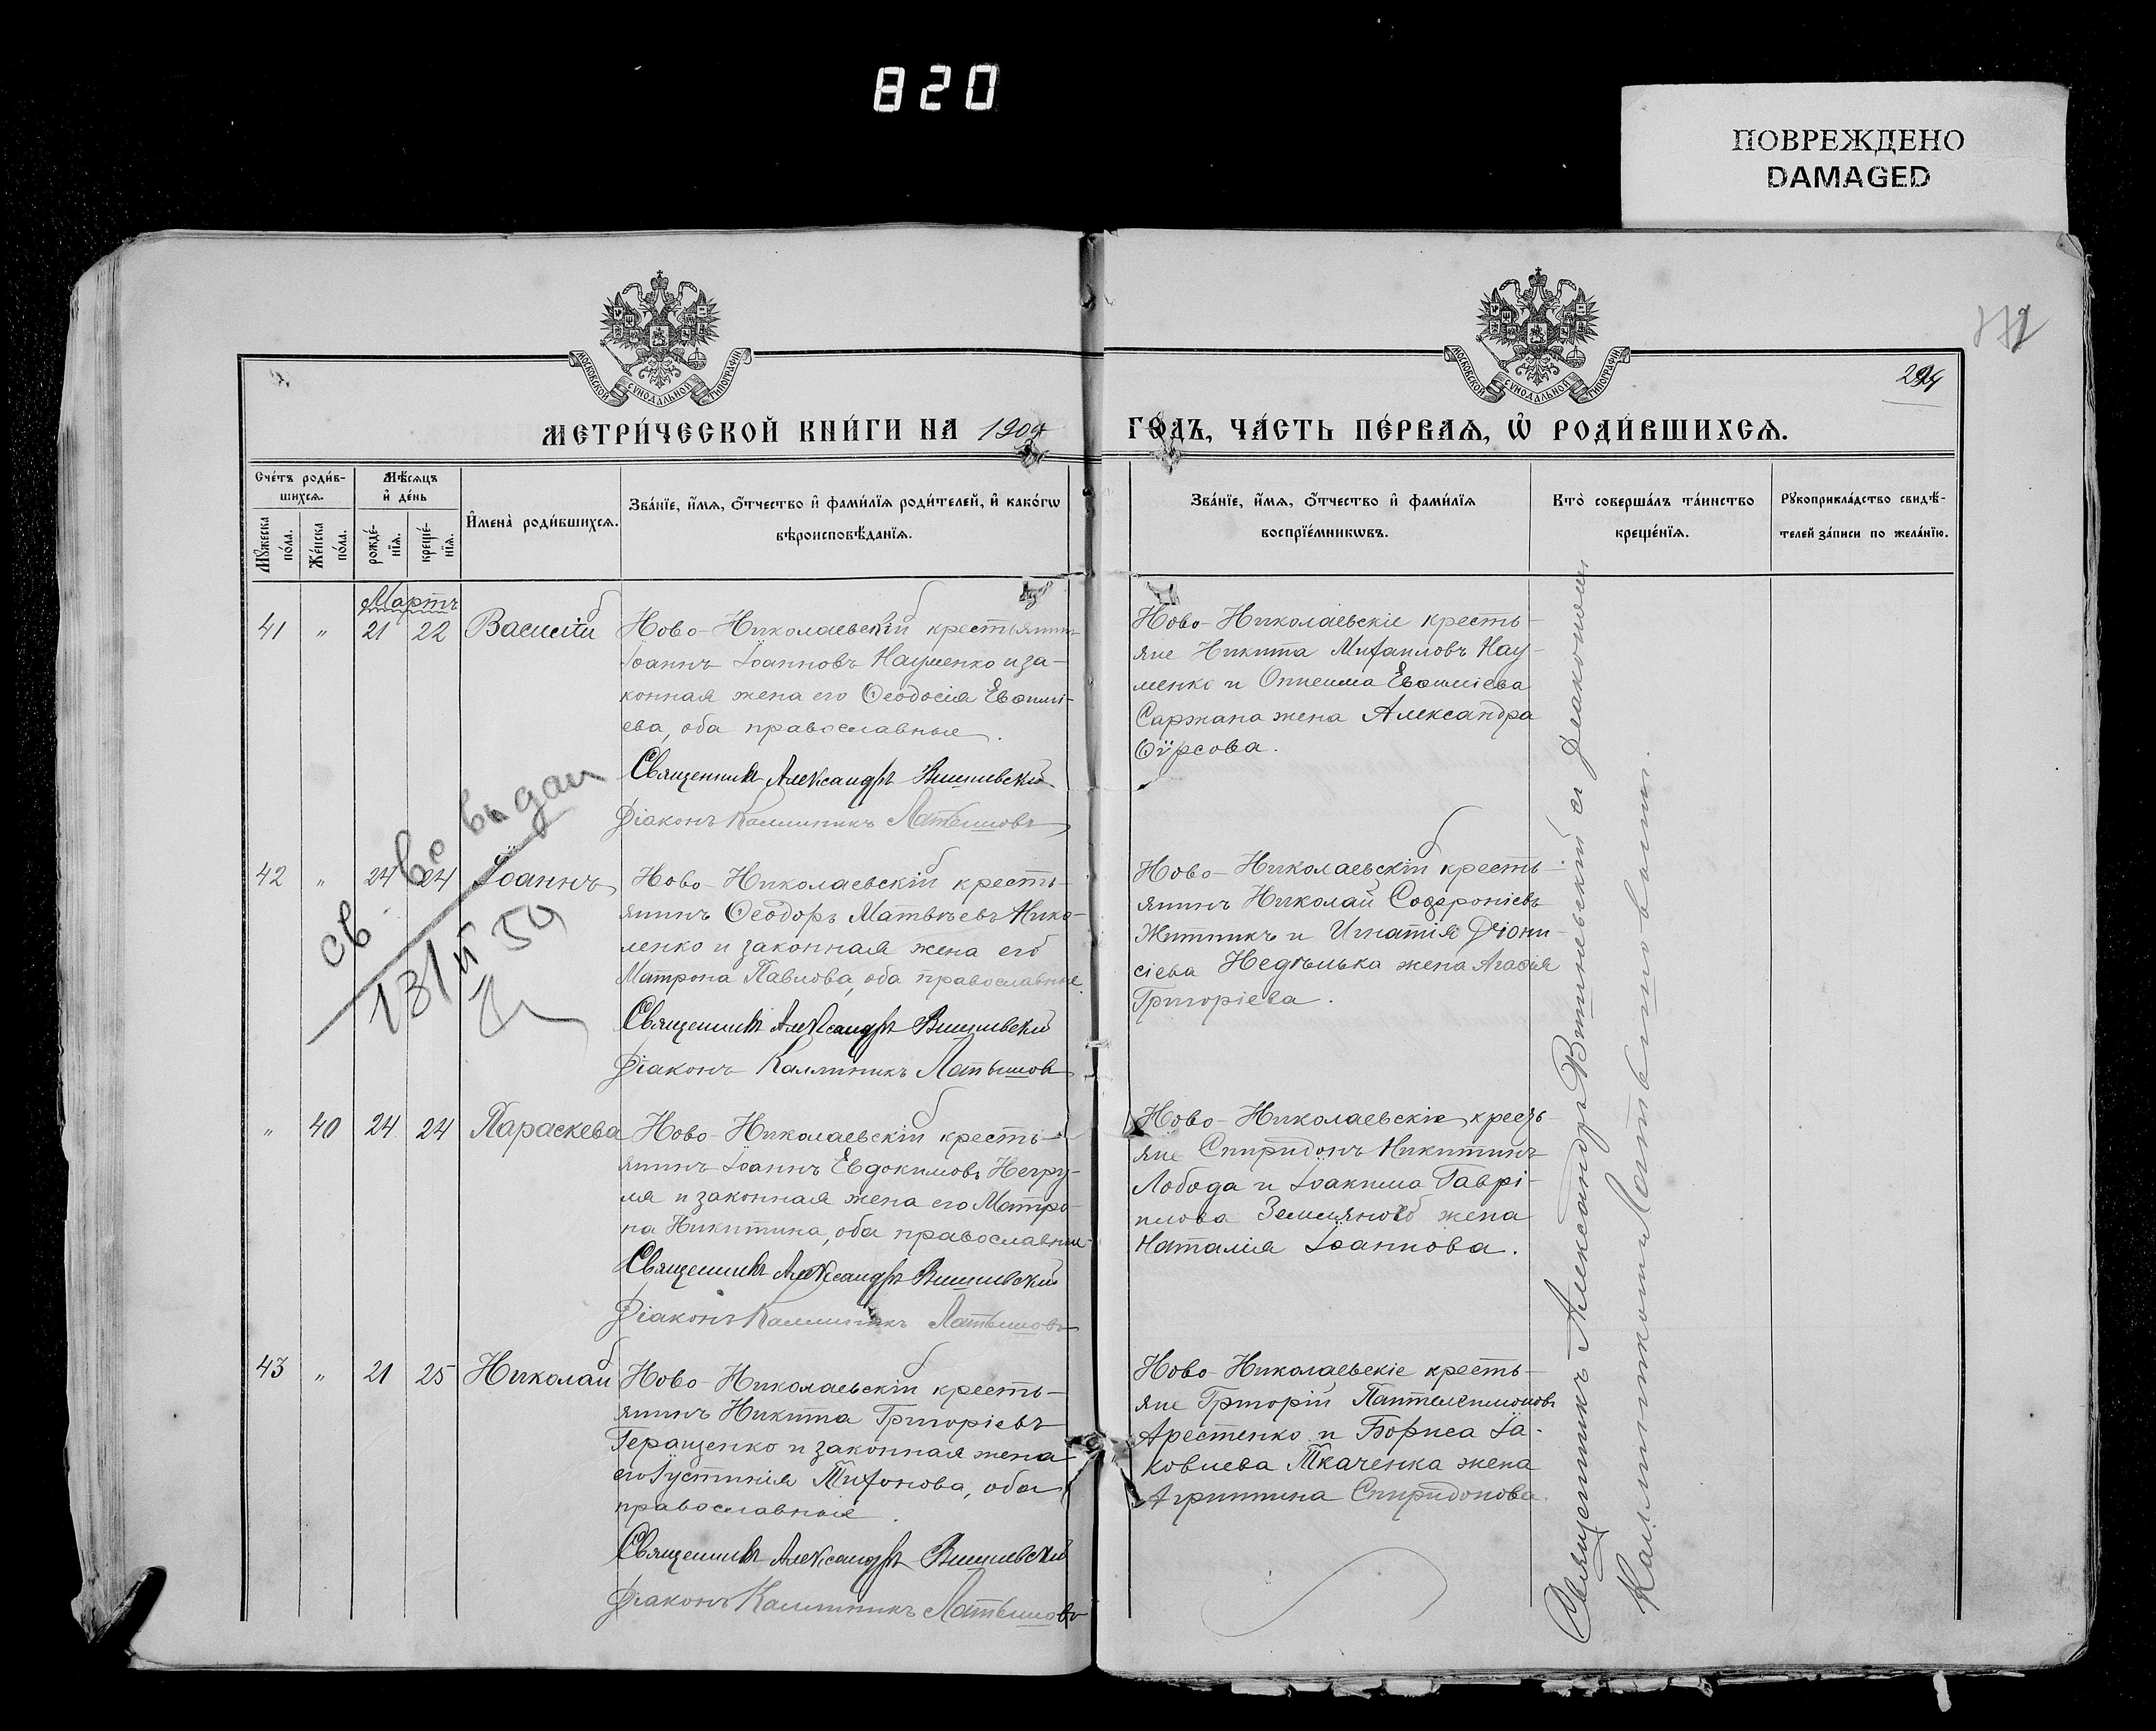 820
ПОВРЕЖДЕНО
DAMAGED
МОСКОВСКОЙ СѴНОДАЛЬНОЙ ТИПОГРАФІИ
МОСКОВСКОЙ СѴНОДАЛЬНОЙ ТИПОГРАФІИ
МЕТРИ́ЧЕСКОЙ КНИ́ГИ НА 190
ГО́ДЪ, ЧА́СТЬ ПЕ́РВАѦ, Ѡ҆ РОДИ́ВШИХСѦ.
Сче́тъ роди́в-
шихсѧ.
Мꙋ́жеска по́ла.
Же́нска по́ла.
Мѣ́сѧцъ
и҆ де́нь
рожде́-нїѧ.
креще́-нїѧ.
И҆мена̀ роди́вшихсѧ.
Зва́нїе, и҆́мѧ, ѻ҆́тчество и҆ фами́лїѧ роди́телей, и҆ како́гѡ
вѣроисповѣ́данїѧ.
Зва́нїе, и҆́мѧ, ѻ҆́тчество и҆ фами́лїѧ
воспрїе́мникѡвъ.
Кто̀ соверша́лъ та́инство
креще́нїѧ.
Рꙋкоприкла́дство свидѣ́-
телей за́писи по жела́нїю.
Мартъ
41 " 21 22 Василій
Ново-Николаевскій крестьянинъ
Іоаннъ Іоанновъ Науменко и за-
конная жена его Ѳеодосія Евѳимі-
ева, оба православные.
Священникъ Александръ Вишневскій
Діаконъ Каллиникъ Латышовъ
Ново-Николаевскіе кресть-
яне Никита Михаиловъ Нау-
менко и Онисима Евѳиміева
Саржана жена Александра
Ѳирсова.
св во выдан
13/II 59
42 " 24 24 Іоаннъ
Ново-Николаевскій кресть-
янинъ Ѳеодоръ Матвѣевъ Нико-
ленко и законная жена его
Матрона Павлова, оба православные.
Священникъ Александръ Вишневскій
Діаконъ Каллиникъ Латышов
Ново-Николаевскій кресть-
янинъ Николай Софроніевъ
Житникъ и Игнатія Діони-
сіева Недѣлька жена Агафія
Григоріева.
" 40 24 24 Параскева
Ново-Николаевскій кресть-
янинъ Іоаннъ Евдокимовъ Негру-
ля и законная жена его Матро-
на Никитина, оба православные
Священникъ Александръ Вишневскій
Діаконъ Каллиникъ Латышовъ
Ново-Николаевскіе кресть-
яне Спиридонъ Никитинъ
Лобода и Іоакима Гаврі-
илова Земляного жена
Наталія Іоаннова.
43 " 21 25 Николай
Ново-Николаевскій кресть-
янинъ Никита Григоріевъ
Геращенко и законная жена
его Іустинія Тихонова, оба
православные.
Священникъ Александръ Вишневскій
Діаконъ Каллиникъ Латышовъ
Ново-Николаевскіе кресть-
яне Григорій Пантелеимоновъ
Арестенко и Бориса Іа-
ковлева Ткаченка жена
Агриппина Спиридонова.
Священникъ Александръ Вишневскій съ діакономъ
Каллиникомъ Латышовымъ.